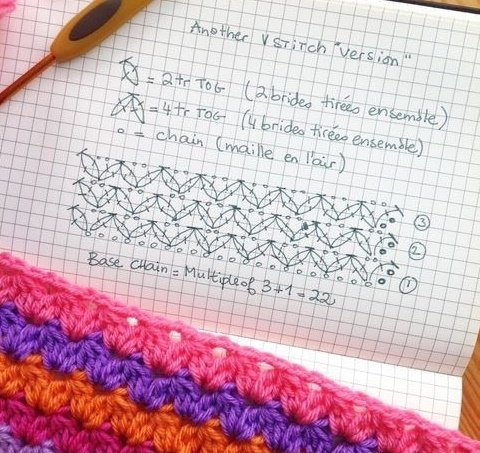 Another V STITCH "version"
= 2tr TOG (2 brides tirées ensemble)
= 4tr TOG (4 brides tirées ensemble)
o = chain (maille en l'air)
3
2
1
Base chain = Multiple of 3+1 = 22